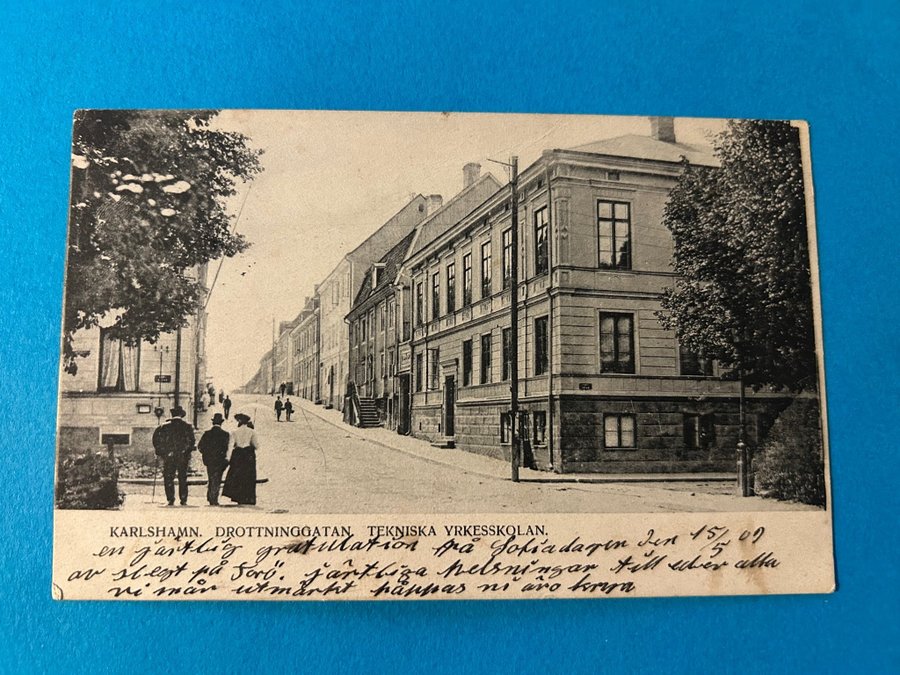 KARLSHAMN. DROTTNINGGATAN. TEKNISKA YRKESSKOLAN.
en järtlig gratulation på Sofiadagen den 15/5 09
av slegt på Torö. järtliga helsningar till eder alla
vi mår utmärkt håppas ni äro